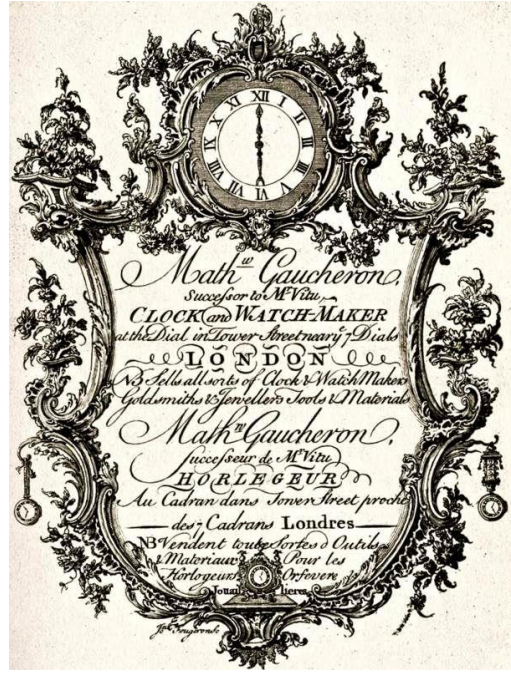 XII I II III IIII V VI VII VIII IX X XI
Mathw Gaucheron,
Succeſsor to Mr Vitu,
CLOCK and WATCH-MAKER
at the Dial in Tower Street near ye 7 Dials
LONDON
NB Sells all sorts of Clock & Watch Makers
Goldsmiths & Jewellers Tools & Materials
Mathw Gaucheron,
Succeſseur de Mr Vitu
HORLEGEUR
Au Cadran dans Tower Street proche
des 7 Cadrans Londres
NB Vendent toutes Sortes d Outils
& Materiaux Pour les
Horlogeurs Orfevere
Jouail lieres